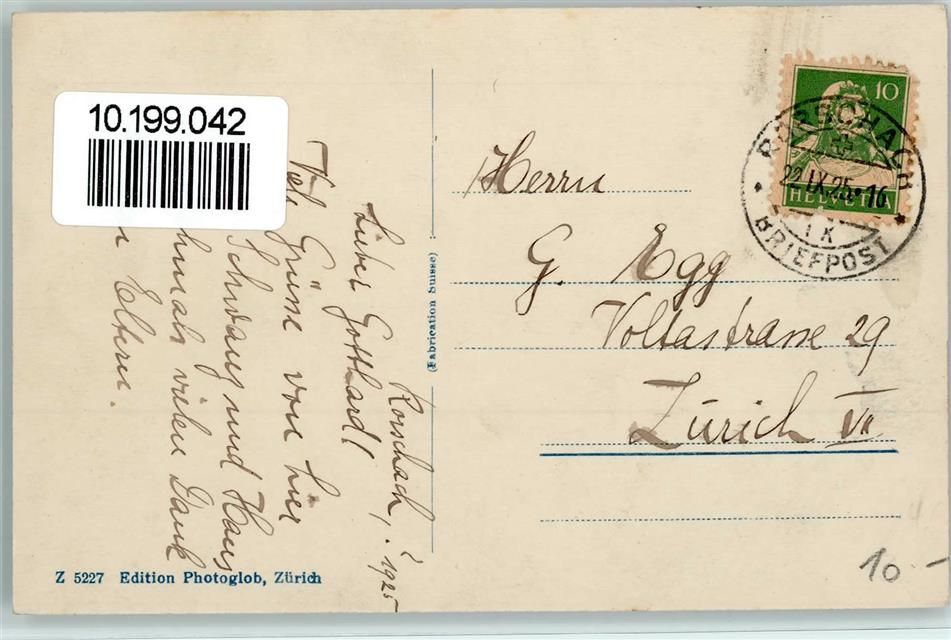 10.199.042
Rorschach, . 1925
Lieber Gotthard!
Viele Grüsse von hier
Schwanz und Hans
chmals vielen Dank
Eltern.
(Fabrication Suisse)
Herrn
G. Egg
Voltastrasse 29
Zürich VII
10
HELVETIA
RORSCHACH
22.IX.25.16
BRIEFPOST
Z 5227 Edition Photoglob, Zürich
10.-